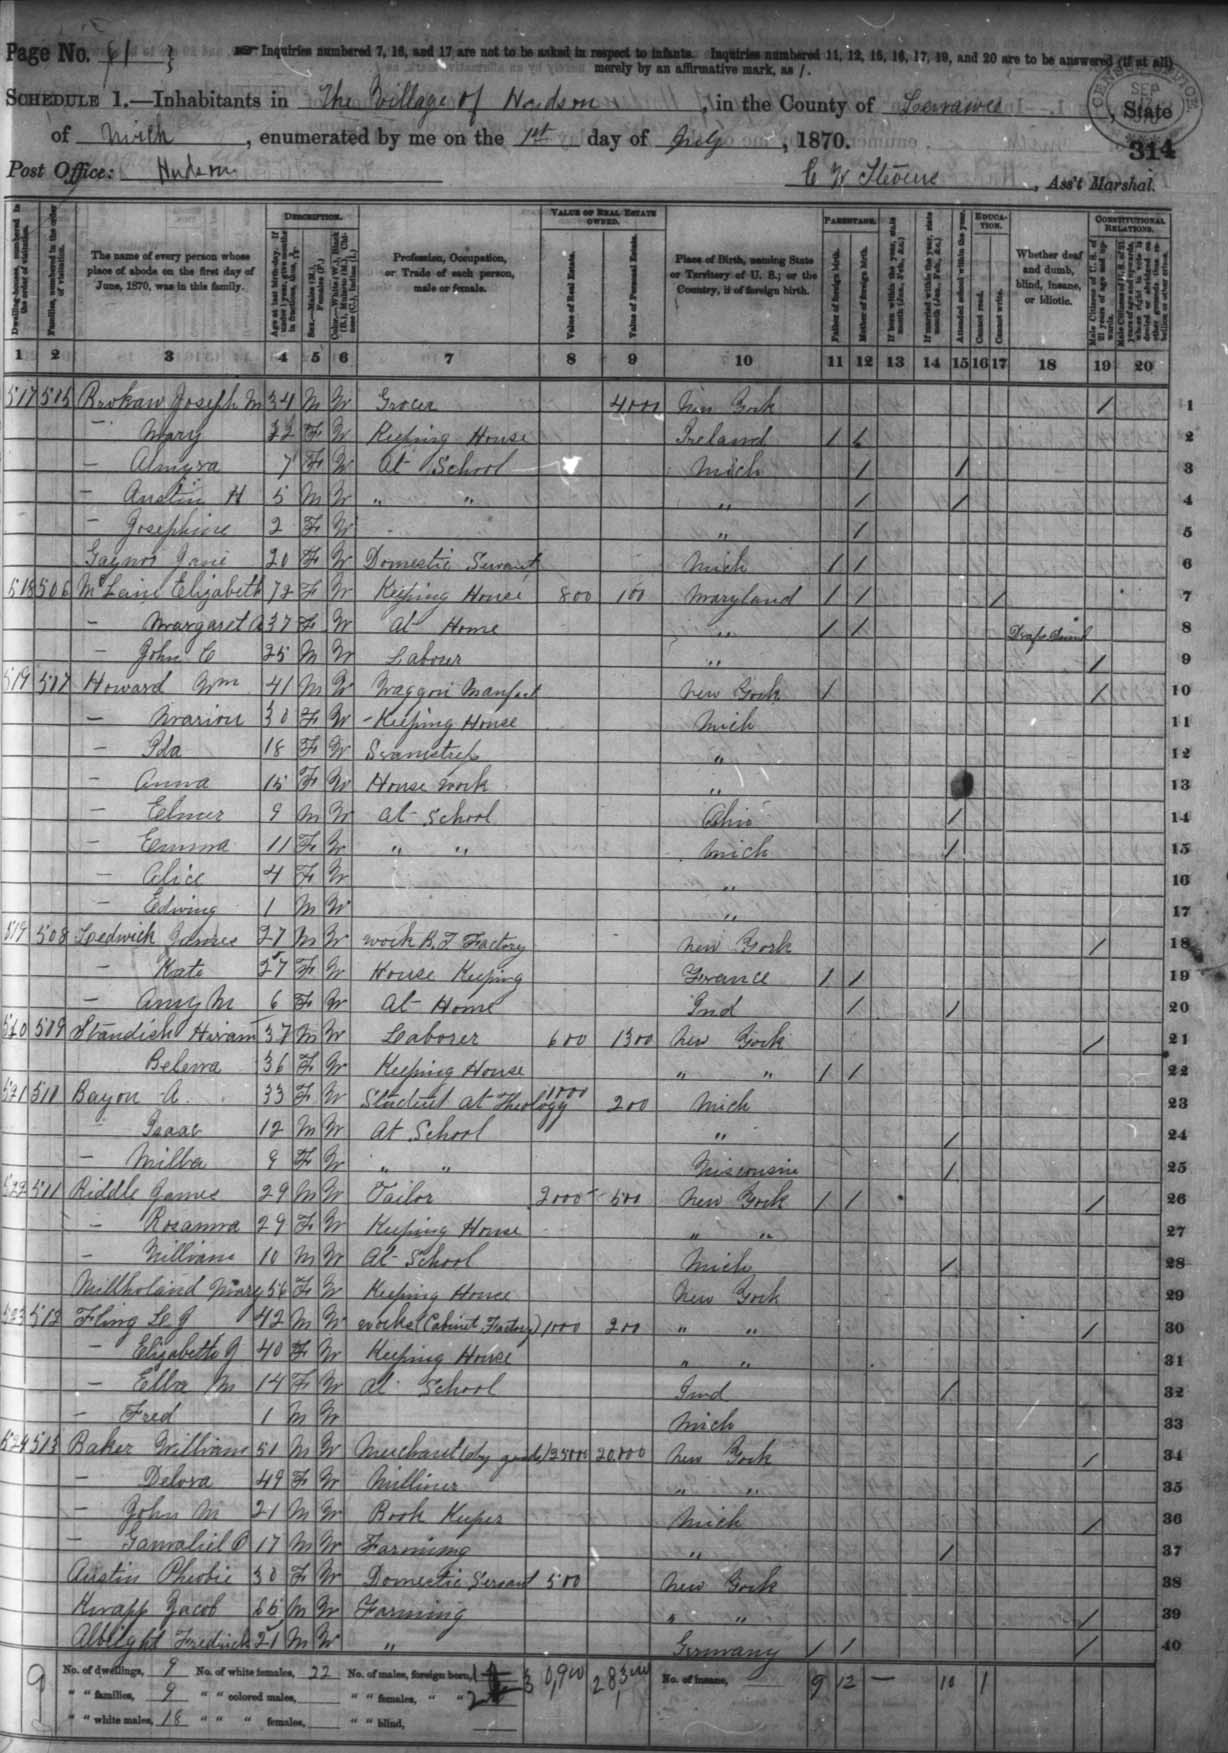 Page No. 61
Inquiries numbered 7, 16, and 17 are not to be asked in respect to infants. Inquiries numbered 11, 12, 15, 16, 17, 19, and 20 are to be answered (if at all)
merely by an affirmative mark, as /.
SCHEDULE 1.—Inhabitants in The Village of Hudson, in the County of Lenawee, State
of Mich, enumerated by me on the 1st day of July, 1870.
CENSUS OFFICE SEP
314
Post Office: Hudson C W Stevens, Ass't Marshal.
Dwelling-houses, numbered in the order of visitation.
Families, numbered in the order of visitation.
The name of every person whose place of abode on the first day of June, 1870, was in this family.
DESCRIPTION.
Age at last birth-day. If under 1 year, give months in fractions, thus,
Sex.—Males (M.), Females (F.)
Color.—White (W.), Black (B.), Mulatto (M.), Chinese (C.), Indian (I.)
Profession, Occupation, or Trade of each person, male or female.
VALUE OF REAL ESTATE OWNED.
Value of Real Estate.
Value of Personal Estate.
Place of Birth, naming State or Territory of U. S.; or the Country, if of foreign birth.
PARENTAGE.
Father of foreign birth.
Mother of foreign birth.
If born within the year, state month (Jan., Feb., &c.)
If married within the year, state month (Jan., Feb., &c.)
Attended school within the year.
EDUCATION.
Cannot read.
Cannot write.
Whether deaf and dumb, blind, insane, or idiotic.
CONSTITUTIONAL RELATIONS.
Male Citizens of U. S. of 21 years of age and upwards.
Male Citizens of U. S. of 21 years of age and upwards, where right to vote is denied or abridged on other grounds than rebellion or other crime.
1 2 3 4 5 6 7 8 9 10 11 12 13 14 15 16 17 18 19 20
517 515 Brokaw Joseph M 34 M W Grocer 4000 New York / 1
– Mary 32 F W Keeping House Ireland / / 2
– Almyra 7 F W At School Mich / / 3
– Austin H 5 M W " " " / / 4
– Josephine 2 F W " / 5
Gaynor Jane 20 F W Domestic Servant Mich / / 6
518 506 McLain Elizabeth 72 F W Keeping House 800 100 Maryland / / / 7
– Margaret A 37 F W At Home " / / Deaf & Dumb 8
– John C 25 M W Labour " / 9
519 507 Howard Wm 41 M W Waggon Manfact New York / / 10
– Marion 30 F W Keeping House Mich 11
– Ida 18 F W Seamstress " 12
– Anna 15 F W House work " 13
– Elmer 9 M W At School Ohio / 14
– Emma 11 F W " " Mich / 15
– Alice 4 F W " 16
– Edwing 1 M W " 17
519 508 Ledwick James 27 M W work B.T Factory New York / 18
– Kate 27 F W House Keeping France / / 19
– Amy M 6 F W At Home Ind / / 20
520 509 Standish Hiram 37 M W Laborer 600 1300 New York / 21
Belewa 36 F W Keeping House " " / / 22
521 510 Bayou A. 33 F W Student at Theology 1000 200 Mich 23
– Isaac 12 M W At School " / 24
– Milba 9 F W " " Wisconsin / 25
522 511 Riddle James 29 M W Tailor 2000 500 New York / / / 26
– Rosanna 29 F W Keeping House " " 27
– William 10 M W At School Mich / 28
Millholand Mary 56 F W Keeping House New York 29
523 512 Fling L. J 42 M W works (Cabinet Factory) 1000 200 " " / 30
– Elizabeth J 40 F W Keeping House " " 31
– Ella M 14 F W At School Ind / 32
– Fred 1 M W Mich 33
524 513 Baker William 51 M W Merchant (dry goods) 25000 20,000 New York / 34
– Delora 49 F W Milliner " " 35
– John M 21 M W Book Keeper Mich / 36
– Gamaliel P 17 M W Farming " / 37
Austin Pheobie 30 F W Domestic Servant 500 New York 38
Knapp Jacob 65 M W Farming " " / 39
Allbright Fredrick 21 M W " Germany / / / 40
9 No. of dwellings, 9 No. of white females, 22 No. of males, foreign born, 1 30,900 28,300 No. of insane, 9 12 – 10 1
" " families, 9 " " colored males, " " females, " " 2
" " white males, 18 " " " females, " " blind,